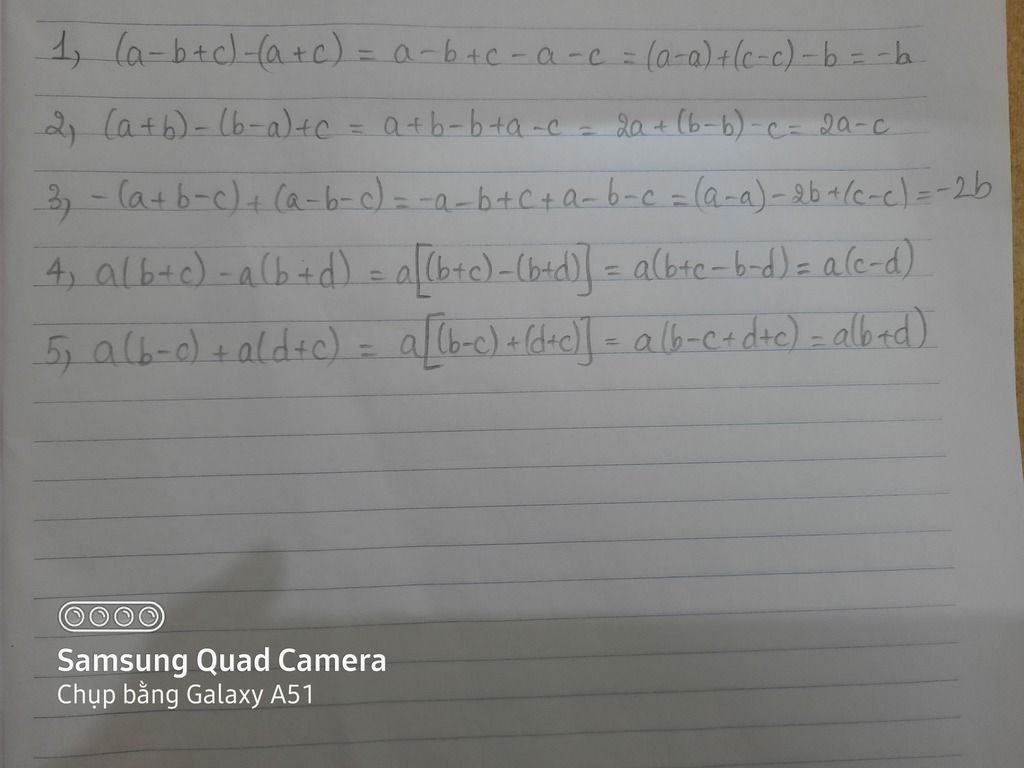 1, (a-b+c)-(a+c) = a-b+c-a-c = (a-a)+(c-c)-b = -b
2, (a+b)-(b-a)+c = a+b-b+a-c = 2a+(b-b)-c = 2a-c
3, -(a+b-c)+(a-b-c) = -a-b+c+a-b-c = (a-a)-2b+(c-c) = -2b
4, a(b+c)-a(b+d) = a[(b+c)-(b+d)] = a(b+c-b-d) = a(c-d)
5, a(b-c)+a(d+c) = a[(b-c)+(d+c)] = a(b-c+d+c) = a(b+d)
Samsung Quad Camera
Chụp bằng Galaxy A51